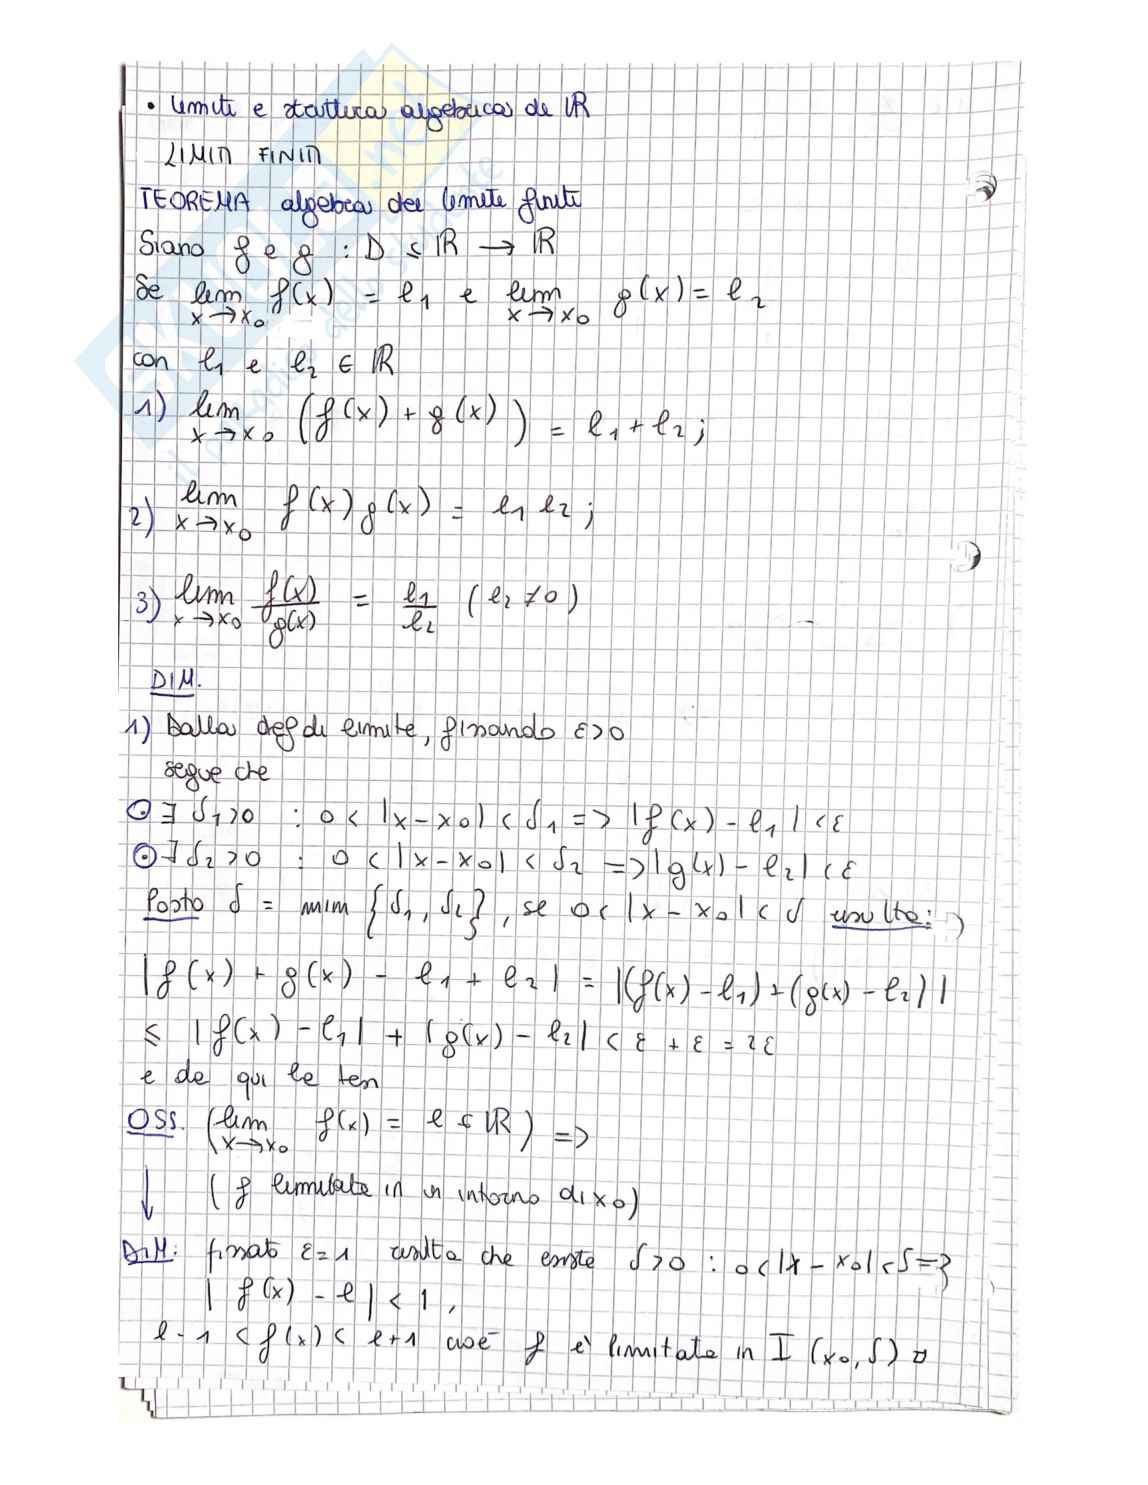 • Limiti e struttura algebrica di ℝ
LIMITI FINITI
TEOREMA algebra dei limiti finiti
Siano f e g : D ⊆ ℝ → ℝ
Se lim x→x₀ f(x) = l₁ e lim x→x₀ g(x) = l₂
con l₁ e l₂ ∈ ℝ
1) lim x→x₀ (f(x) + g(x)) = l₁ + l₂ ;
2) lim x→x₀ f(x) g(x) = l₁ l₂ ;
3) lim x→x₀ f(x)/g(x) = l₁/l₂ (l₂ ≠ 0)
DIM.
1) Dalla def di limite, fissando ε>0
segue che
⊙ ∃ δ₁>0 : 0 < |x - x₀| < δ₁ => |f(x) - l₁| < ε
⊙ ∃ δ₂>0 : 0 < |x - x₀| < δ₂ => |g(x) - l₂| < ε
Posto δ = min {δ₁, δ₂}, se 0 < |x - x₀| < δ risulta:
|f(x) + g(x) - l₁ + l₂| = |(f(x) - l₁) + (g(x) - l₂)|
≤ |f(x) - l₁| + |g(x) - l₂| < ε + ε = 2ε
e da qui la tesi
OSS. (lim x→x₀ f(x) = l ∈ ℝ) =>
↓ (f limitata in un intorno di x₀)
DIM: fissato ε=1 risulta che esiste δ>0 : 0<|x - x₀|<δ =>
|f(x) - l| < 1 ,
l - 1 < f(x) < l+1 cioè f è limitata in I (x₀, δ) □